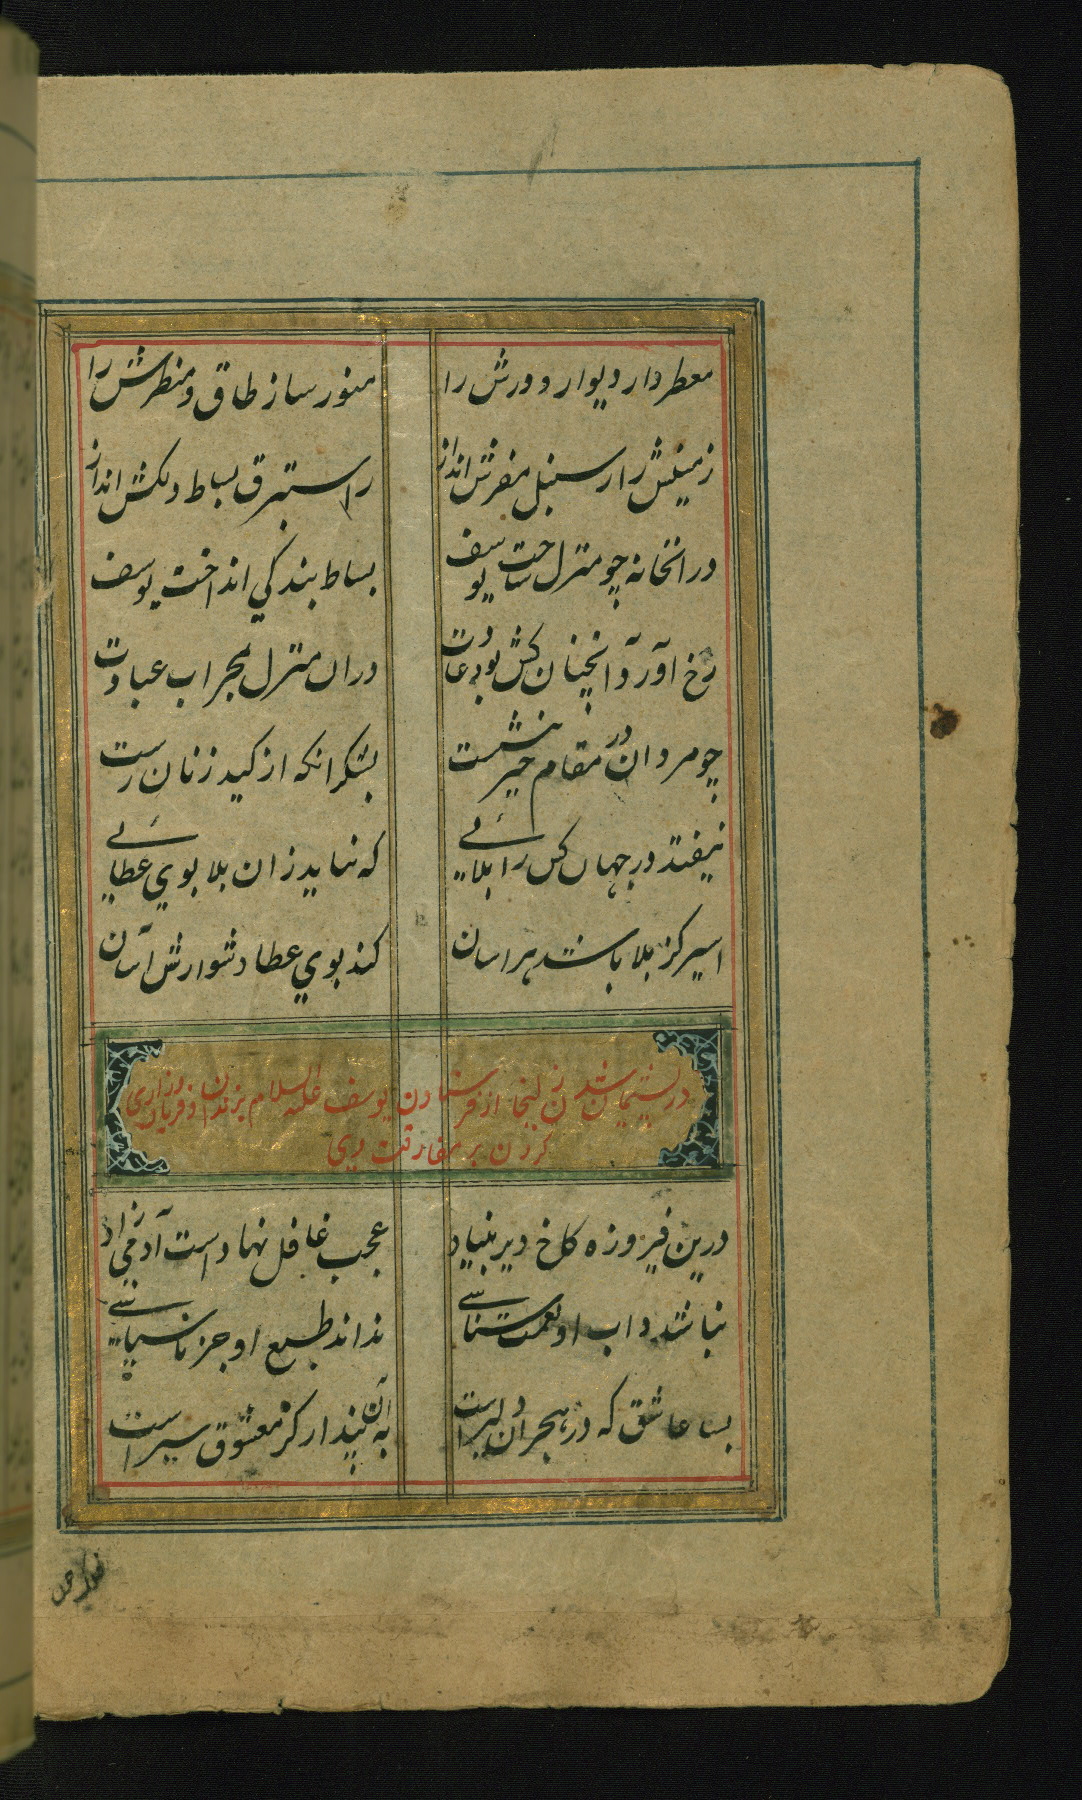 معطر دار دیوار و درش را منور ساز طاق و منظرش را
زمینش را ز سنبل مفرش انداز ز استبرق بساط دلکش انداز
در انخانه چو منزل ساخت یوسف بساط بندکی انداخت یوسف
رخ آورد آنچنان کش بود عادت در ان منزل بمحراب عبادت
چو مردان در مقام خیر بنشست بشکر انکه از کید زنان رست
نیفتد در جهان کس را بلایی که نباید زان بلا بوی عطایی
اسیر کز بلا باشد هراسان کند بوی عطا دشوارش آسان
در پشیمان شدن زلیخا از فرستادن یوسف علیه السلام بزندان و فریاد و زاری
کردن بر مفارقت وی
درین فیروزه کاخ دیر بنیاد عجب غافل نهاد است آدمی زاد
نباشد داب او نعمت شناسی نداند طبع او جز ناسپاسی
بسا عاشق که در هجران دلیر است به آن پندار کز معشوق سیر است